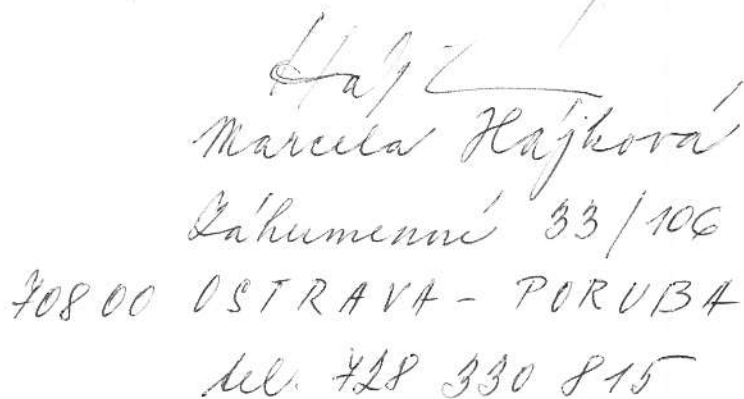 Marcela Hájková
Záhumenní 33/106
70800 OSTRAVA - PORUBA
tel. 728 330 815